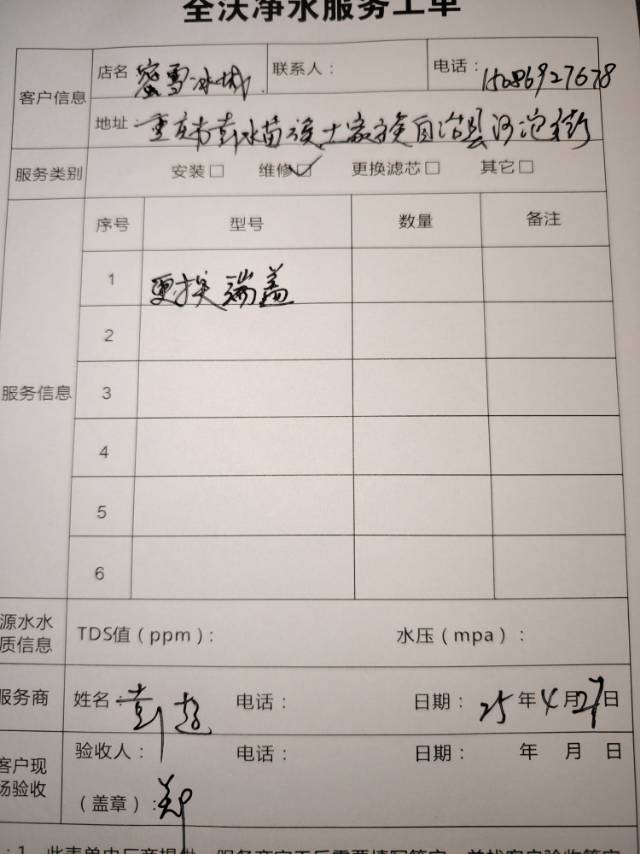 全沃净水服务工单
客户信息 店名 蜜雪冰城 联系人： 电话：15086927678
地址 重庆市彭水苗族土家族自治县河泡街
服务类别 安装□ 维修☑ 更换滤芯□ 其它□
服务信息 序号 型号 数量 备注
1 更换端盖
2
3
4
5
6
源水水质信息 TDS值（ppm）： 水压（mpa）：
服务商 姓名 彭超 电话： 日期：25年4月27日
客户现场验收 验收人： 电话： 日期： 年 月 日
（盖章）：郑